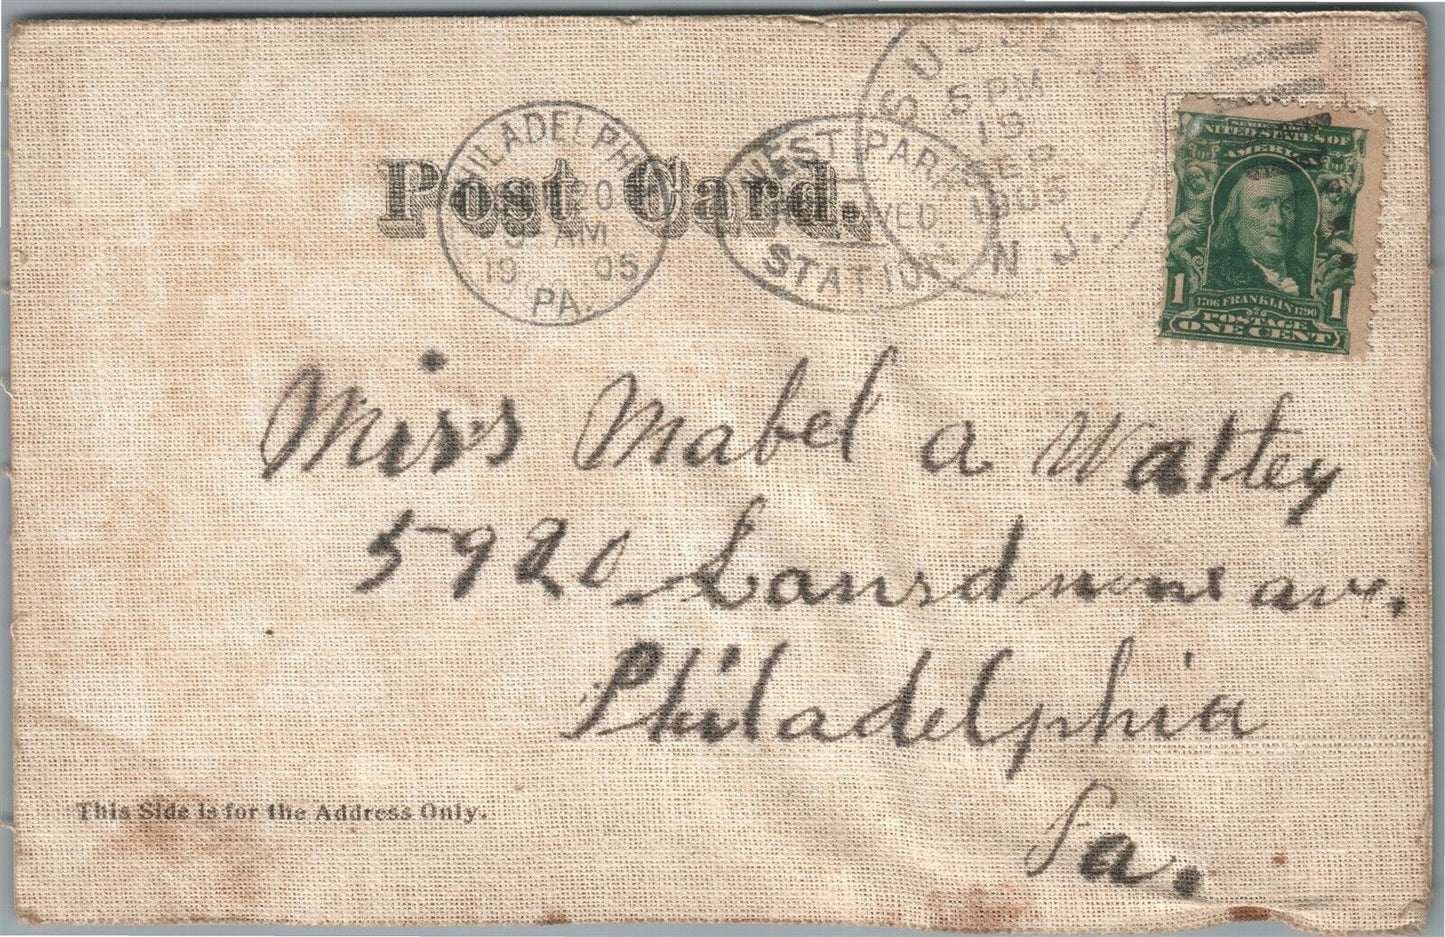 SUSSEX
5 PM
19
SEP
1905
N.J.
PHILADELPHIA
20
AM
19 05
PA.
WEST PARK
STATION
Post Card.
SERIES 1902
UNITED STATES OF
AMERICA
1706 FRANKLIN 1790
1 1
POSTAGE
ONE CENT
Miss Mabel a Waltey
5920 Lansdowne ave.
Philadelphia
Pa.
This Side is for the Address Only.